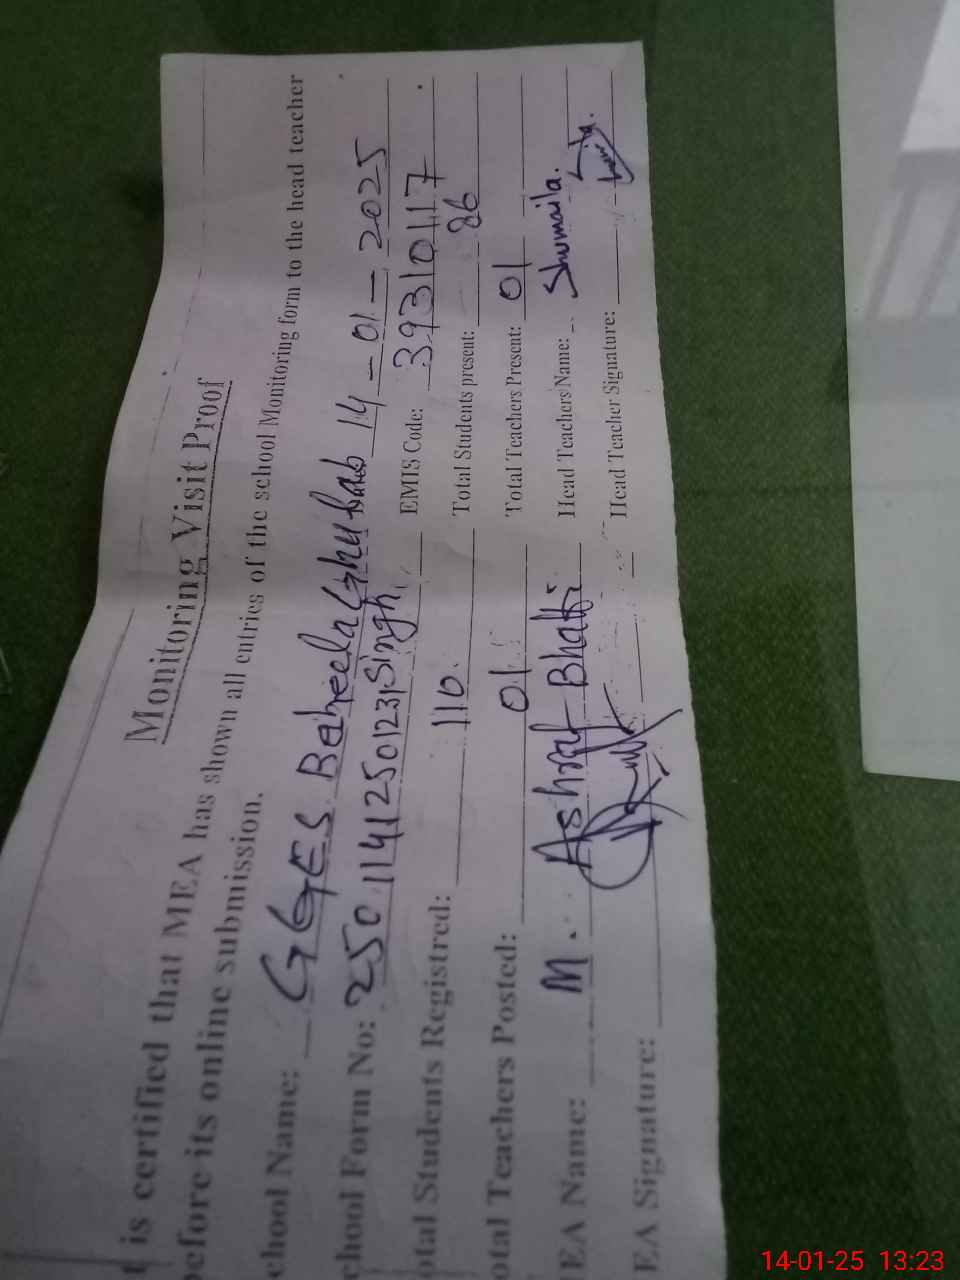 Monitoring Visit Proof
t is certified that MEA has shown all entries of the school Monitoring form to the head teacher
before its online submission.
chool Name: GGES Babeela Ghubab Singh Dated 14-01-2025
chool Form No: 25011412501231 EMIS Code: 39310117
otal Students Registred: 110 Total Students present: 86
otal Teachers Posted: 01 Total Teachers Present: 01
EA Name: M. Ashraf Bhatti Head Teachers Name: Shumaila.
EA Signature: Head Teacher Signature:
14-01-25 13:23